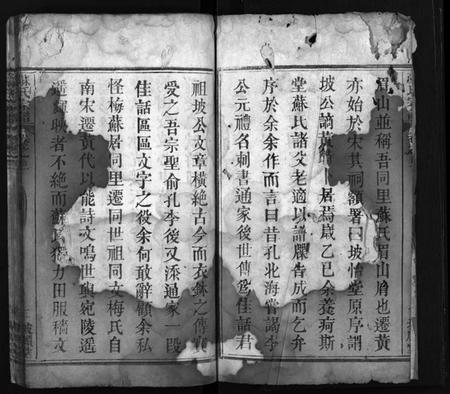 眉山並稱吾同里蘇氏眉山裔也遷黃
亦始於宋其祠額署曰坡怡堂原序謂
坡公謫黃 居焉歲乙巳余養疴斯
堂蘇氏諸父老適以譜牒告成而乞弁
序於余余作而言曰昔孔北海嘗謁李
公元禮名刺書通家後世傳為佳話君
祖坡公文章橫絶古今而衣鉢之傳實
愛之吾宗聖俞孔李後又添通家一段
佳話區區文字之役余何敢辭顧余私
怪梅蘇居同里遷同世祖同文梅氏自
南宋遷黃代以能詩文鳴世與宛陵遥
遥輝映者不絶而蘇氏獨力田服穡文